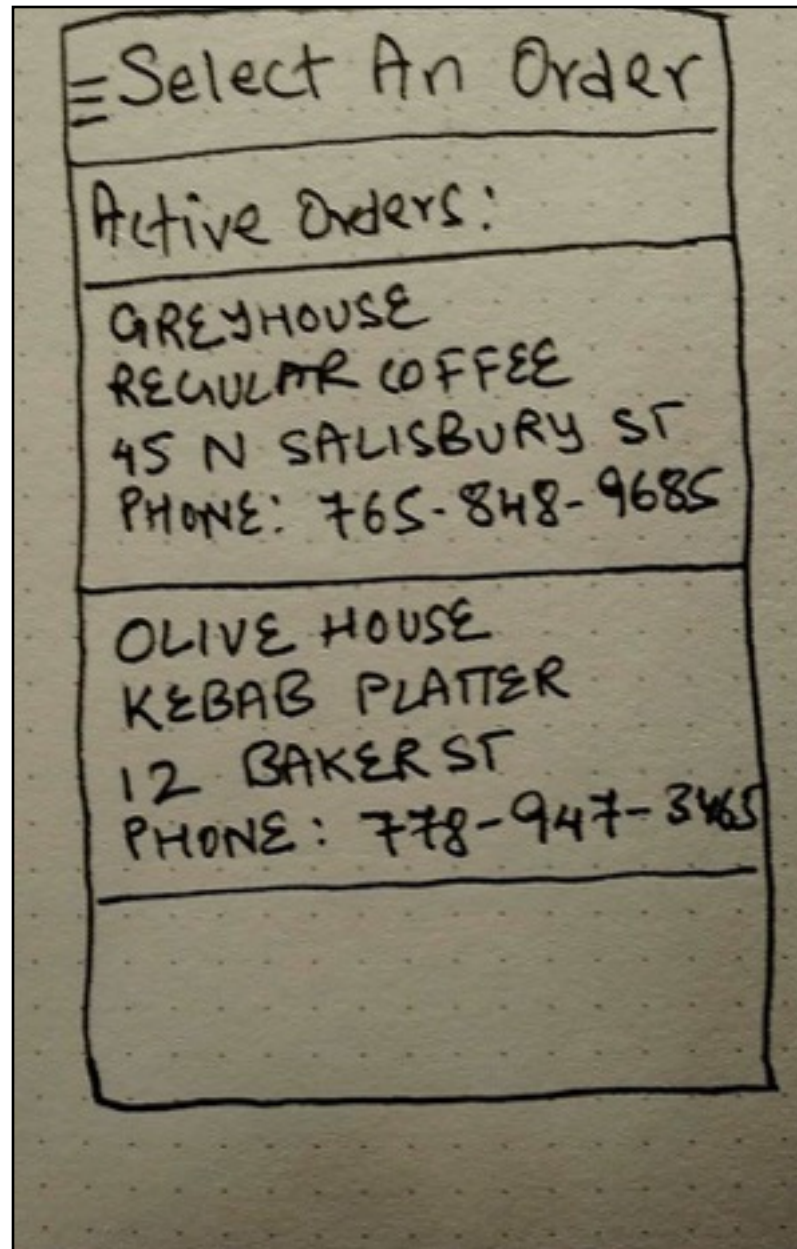 Select An Order
Active Orders:
GREYHOUSE
REGULAR COFFEE
45 N SALISBURY ST
PHONE: 765-848-9685
OLIVE HOUSE
KEBAB PLATTER
12 BAKER ST
PHONE: 778-947-3465